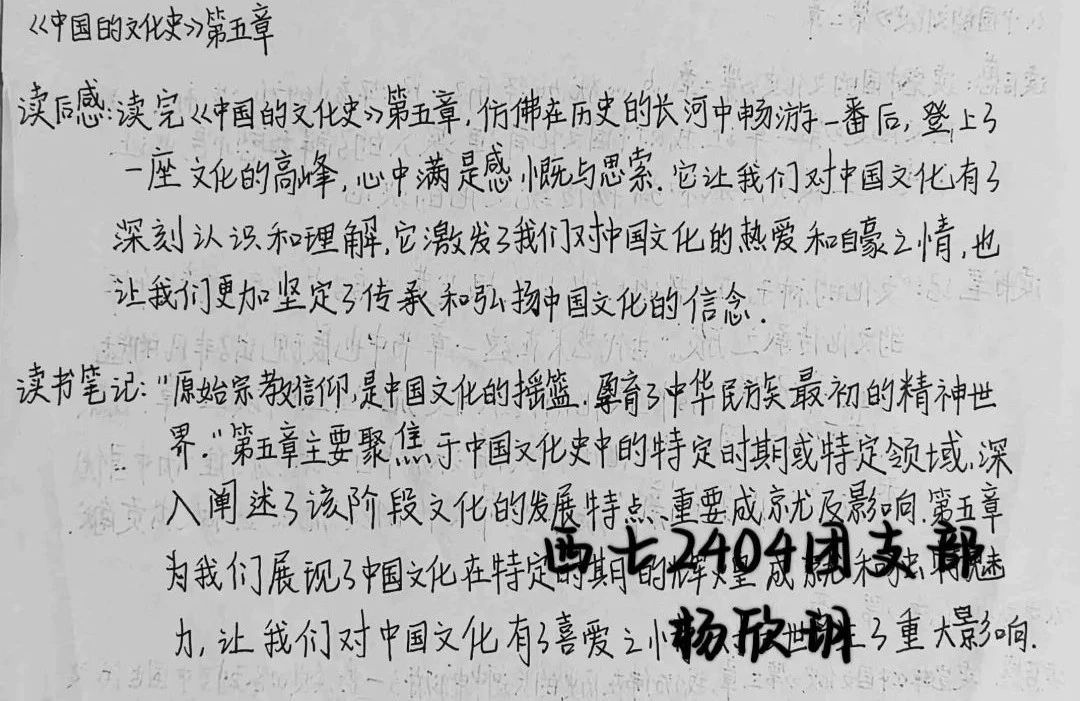 《中国的文化史》第五章
读后感:读完《中国的文化史》第五章,仿佛在历史的长河中畅游一番后,登上了
一座文化的高峰,心中满是感慨与思索.它让我们对中国文化有了
深刻认识和理解,它激发了我们对中国文化的热爱和自豪之情,也
让我们更加坚定了传承和弘扬中国文化的信念.
读书笔记:"原始宗教信仰,是中国文化的摇篮.孕育了中华民族最初的精神世
界."第五章主要聚焦于中国文化史中的特定时期或特定领域,深
入阐述了该阶段文化的发展特点、重要成就及影响.第五章
西七2404团支部
为我们展现了中国文化在特定时期的辉煌成就和独特魅
杨欣
力,让我们对中国文化有了喜爱之 世 了重大影响.